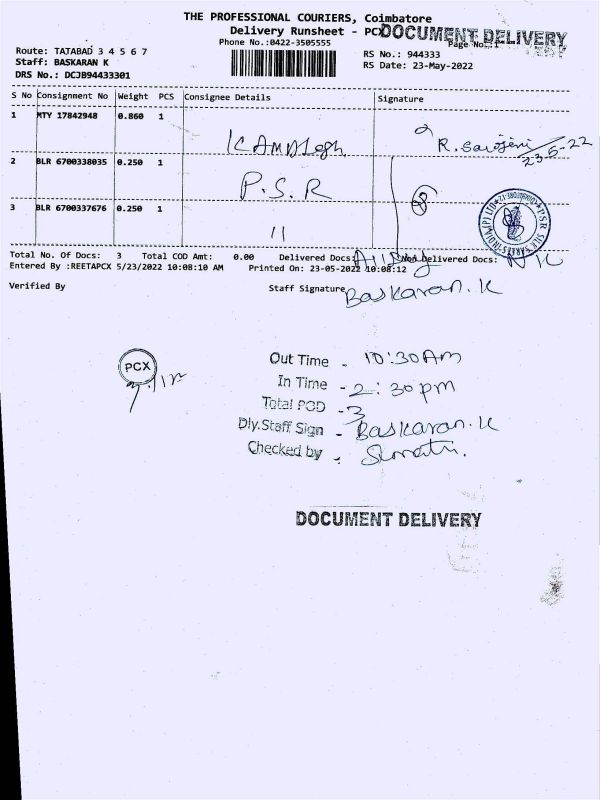 THE PROFESSIONAL COURIERS, Coimbatore
Delivery Runsheet - PCX
DOCUMENT DELIVERY
Phone No.:0422-3505555
Page No.:1
Route: TATABAD 3 4 5 6 7
RS No.: 944333
Staff: BASKARAN K
RS Date: 23-May-2022
DRS No.: DCJB94433301
S No Consignment No Weight PCS Consignee Details Signature
1 MTY 17842948 0.860 1
R. Sarojeni
23-5-22
2 BLR 6700338035 0.250 1 P.S.R 8
3 BLR 6700337676 0.250 1 11
Total No. Of Docs: 3 Total COD Amt: 0.00 Delivered Docs: Not Delivered Docs: Nil
Entered By :REETAPCX 5/23/2022 10:08:10 AM Printed On: 23-05-2022 10:08:12
Verified By Staff Signature Baskaran.K
PCX
Out Time - 10:30Am
In Time - 2:30pm
Total POD - 3
Dly.Staff Sign - Baskaran.K
Checked by -
DOCUMENT DELIVERY